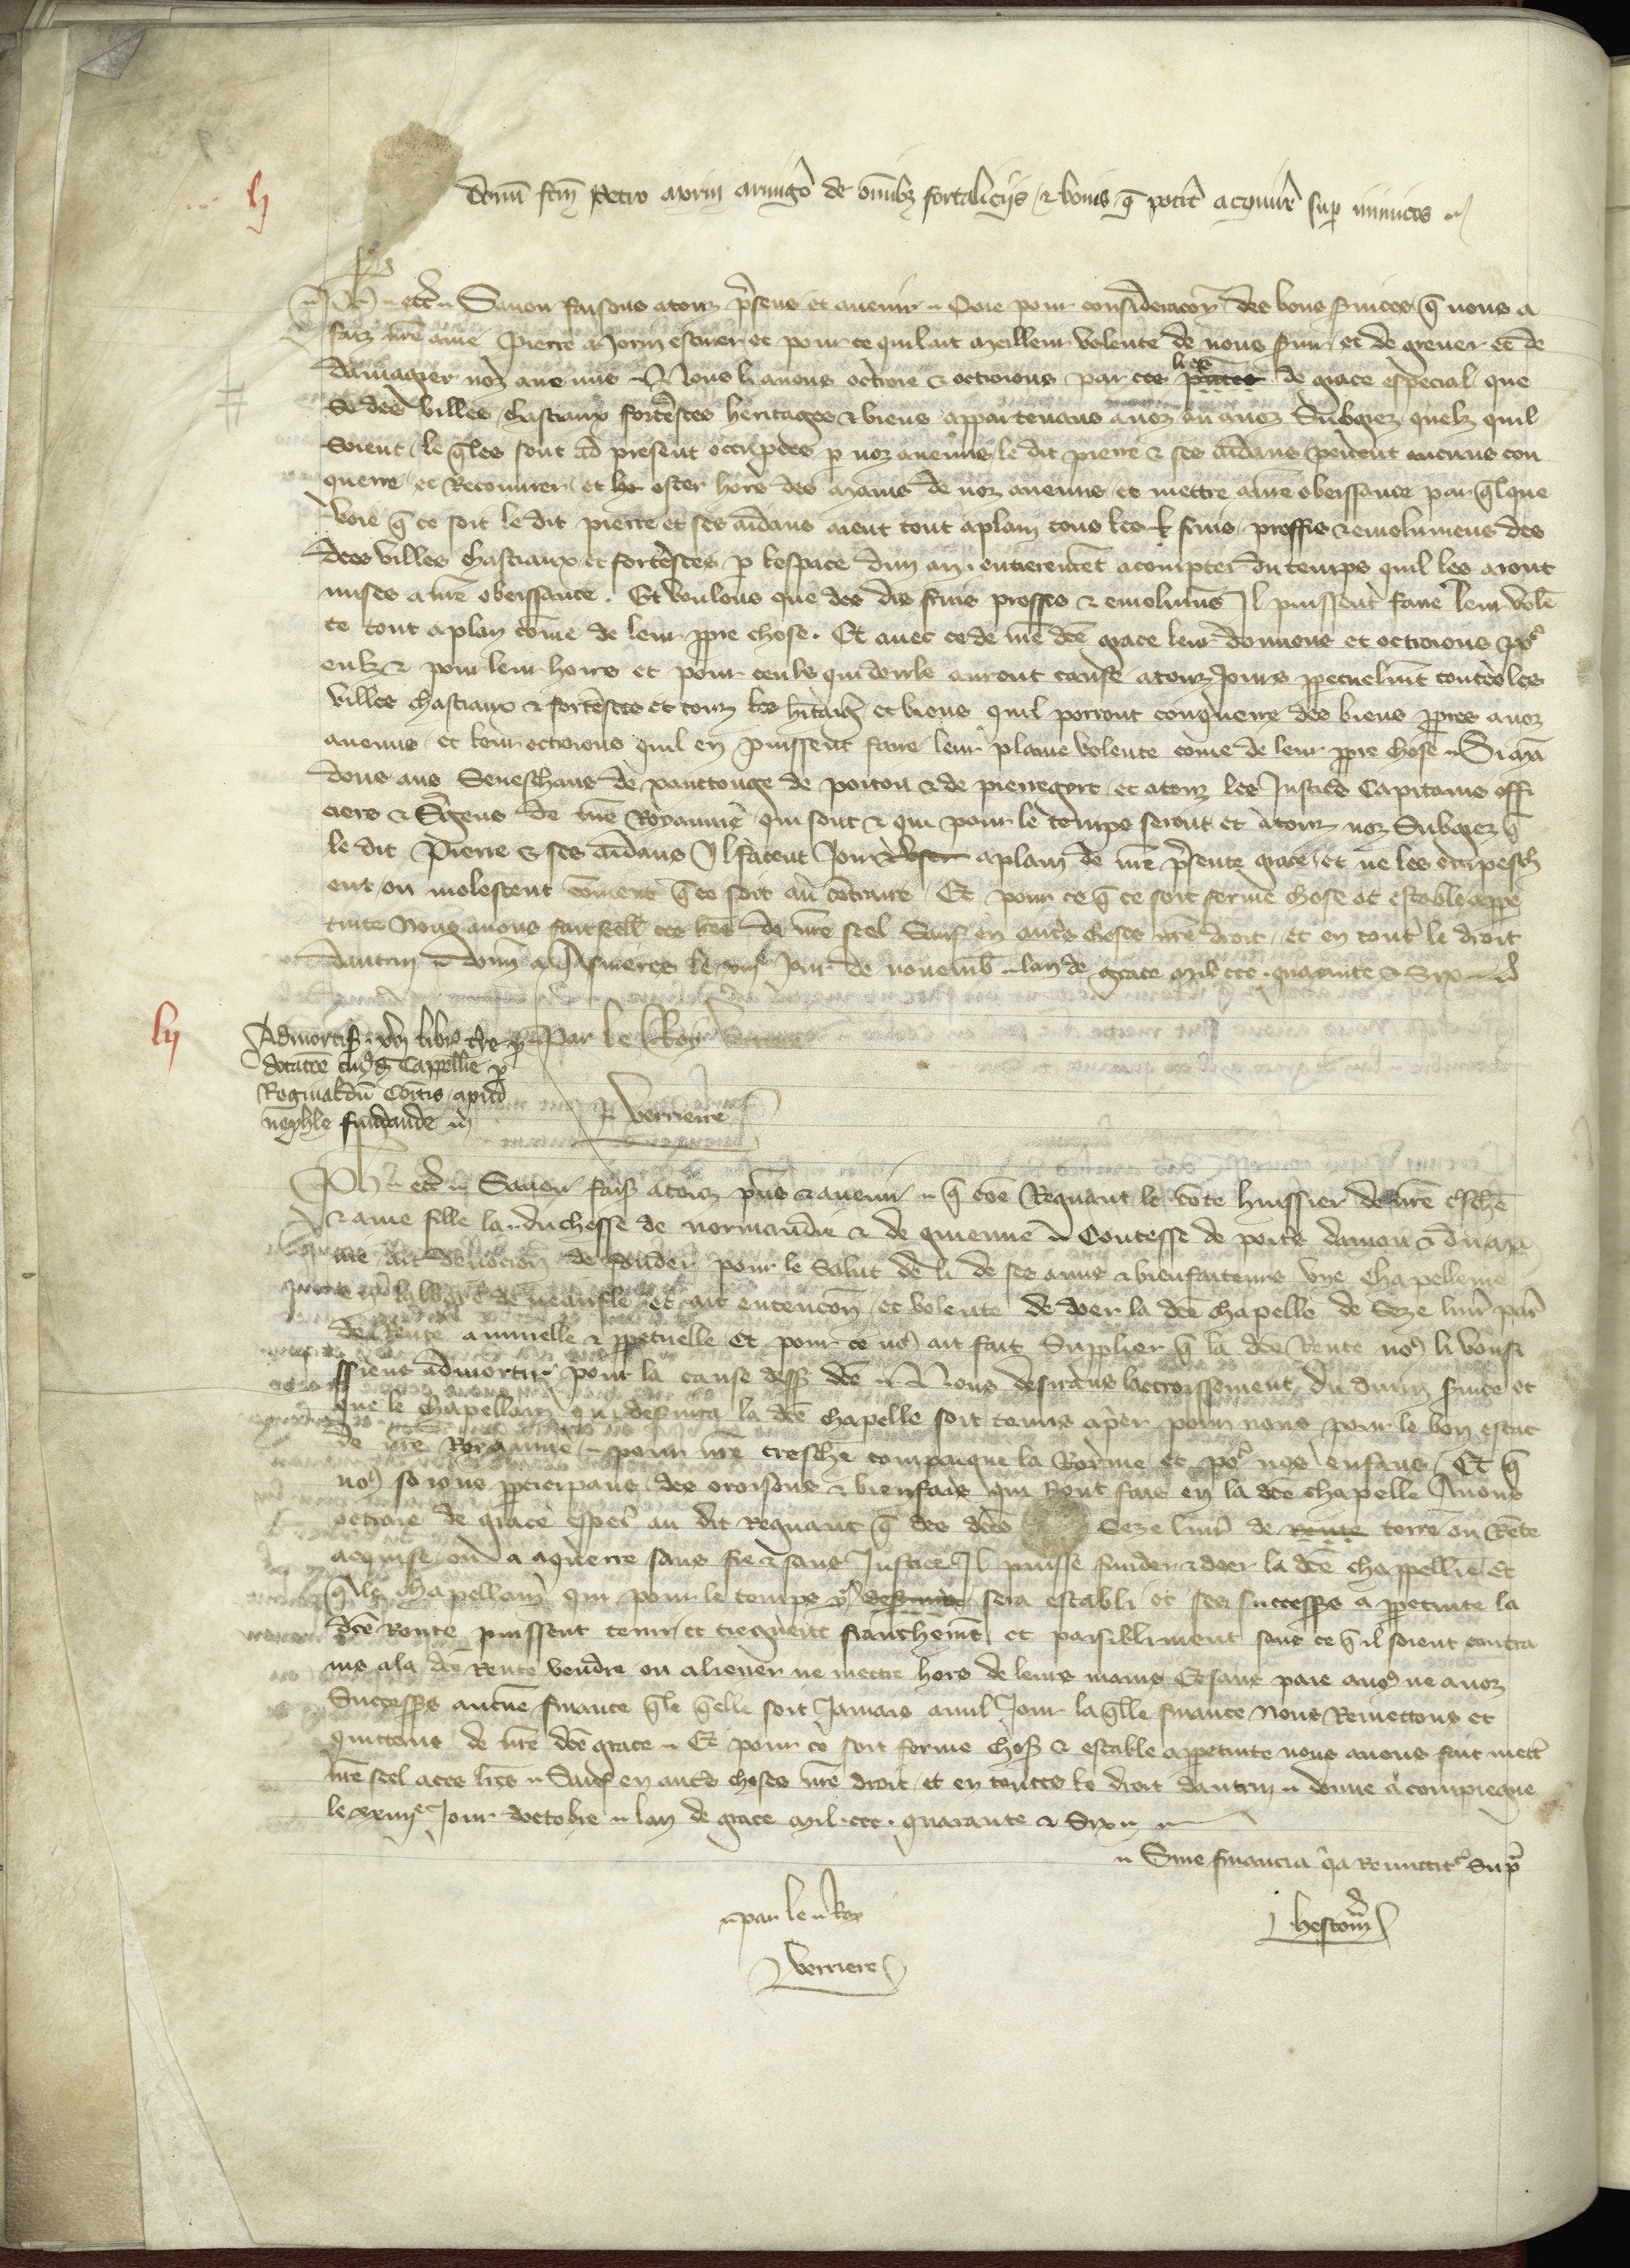 lj
Donũ fc̃m Petro morin armigo de omĩbꝫ fortalicijs ⁊ bonis q̃ potit̃ acquirẽ suꝑ inimicos
Ph̃ ⁊ cet̃ Sauoir faisons atouz p̃sens et auenir Que pour consideracoñ des bons s̃uices q̃ nous a
faiz nr̃e ame Pierre Morin escuier et pour ce quil ait meilleur volente de nous s̃uir et de greuer et de
damagier noz anemis Nous li auons octroie ⁊ octroions par ces lr̃es de grace especial que
Se des villes chasteaux fort̃esces heritages ⁊ biens appartenans anoz ou anoz Subgez quelz quil
Soient le q̃les sont ad present occupees ꝑ noz anemis le dit pierre ⁊ ses aidans peuent aucuns con
querre et Recouurer et oster hors des mains de noz anemis et mettre anr̃e obeissance par q̃lque
voie q̃ ce soit le dit pierre et ses aidans aient tout aplain tous les fruis proffis ⁊ emolumens des
dc̃es villes chasteaux et fort̃esces ꝑ lespace dun an entierem̃et acompter du temps quil les aront
mises anr̃e obeissance. Et voulons que des dis fruis proffis ⁊ emolum̃s Il puissent faire leur volẽ
te tout aplain com̃e de leur ꝓpre chose. Et auec ce de nr̃e dc̃e grace leur donnons et octroions po᷑
eulz ⁊ pour leur hoirs et pour ceuls qui deulx auront cause atouz Jours ꝑpetuelm̃t toutes les
villes chasteaux ⁊ fort̃esces et touz les hit̃aig̃ et biens quil porront conquerre des biens ꝓpres anoz
anemis et leur octroions quil en puissent faire leur plaine volente com̃e de leur ꝓpre chose Si mã
dons aus Seneschaus de xanttonge de poitou ⁊ de pierregort et atouz les Justic̃s Capitains offi
ciers ⁊ S̃gens de nr̃e Royaume qui sont ⁊ qui pour le temps seront et atouz noz Subgiez q̃
le dit Pierre ⁊ ses aidans Il facent Joir aplain de nr̃e p̃sente grace et ne les empesch
ent ou molestent com̃ent q̃ ce soit au cont̃raire Et pour ce q̃ ce soit ferme chose et estable appe
tuite Nous auons fait seell̃ ces lr̃es de nr̃e seel Sauf en aut̃s choses nr̃e droit et en tout̃ le droit
dautrui donñ a Asnieres le Jour de nouemb̃ lan de grace mil ccc. quarante ⁊ Six
lij
Admortiss̃ xvj libr̃ tr̃e ꝓ
dotac̃oe cuiᵍd̃ Cappellie ꝑ
Reginaldũ Com̃tis apud
neaphle fundande
Par le Roy
Verriere
Ph̃ ⁊ cet̃ Sauoir fais̃ atouz p̃ns ⁊ auenir q̃ com̃e Regnaut le conte huissier de nr̃e ch̃e
⁊ ame fille la duchesse de normandie ⁊ de guienne Contesse de poitꝰ daniou ⁊ du mai
ne ait deuocion de fonder pour le salut de li de ses amis ⁊ bienfaiteurs vne chapellenie
de neaufle et ait entencon et volente de doer la dc̃e chapelle de Seze liur̃ par̃
de Rente annuelle ⁊ ꝑpetuelle Et pour ce noꝰ ait fait Supplier q̃ la dc̃e Rente noꝰ li vousi
ssiens admortir pour la cause dess̃ dc̃e Nous desirans lacroissement du diuin s̃uice et
que le chapellain qui des̃uira la dc̃e chapelle soit tenus aprier pour nous pour le bon estat
de nr̃e Royaume pour nr̃e tresch̃e compaigne la Royne et po᷑ nos enfans Et q̃
noꝰ soions ꝑticipans des oroisons ⁊ bienfais qui seront fais en la dc̃e chapelle Auons
octroie de grace espec̃ au dit Regnaut q̃ des dc̃es Seze liur̃ de rente terre ou Rẽte
acquise ou a acquerre sans fie ⁊ sans Justice Il puisse funder ⁊ doer la dc̃e chappellie Et
q̃ le chapellain qui pour le temps y sera establi et ses success̃s a ꝑpetuite la
dc̃e Rente puissent tenir et franchem̃t et paisiblement sans ce q̃ il soient contra
ins ala dc̃e Rente vendre ou aliener ne mettre hors de leurs mains Et sans paie anoꝰ ne anoz
Success̃s aucũe finance q̃le q̃elle soit Jamais a nul Jour laq̃lle finance Nous Remettons et
quittons de nr̃e dc̃e grace Et pour ce soit ferme chos̃ ⁊ estable appetuite nous auons fait mett̃
nr̃e seel aces lr̃es Sauf en aut̃s choses nr̃e droit et en toutes le droit dautrui donne a compiegne
le xxiiijᵉ Jour doctobre lan de grace mil. ccc. quarante ⁊ Six
Sine financia q̃a Remittit᷑ Supᵃ
par le Roy
Verriere
J hestom̃